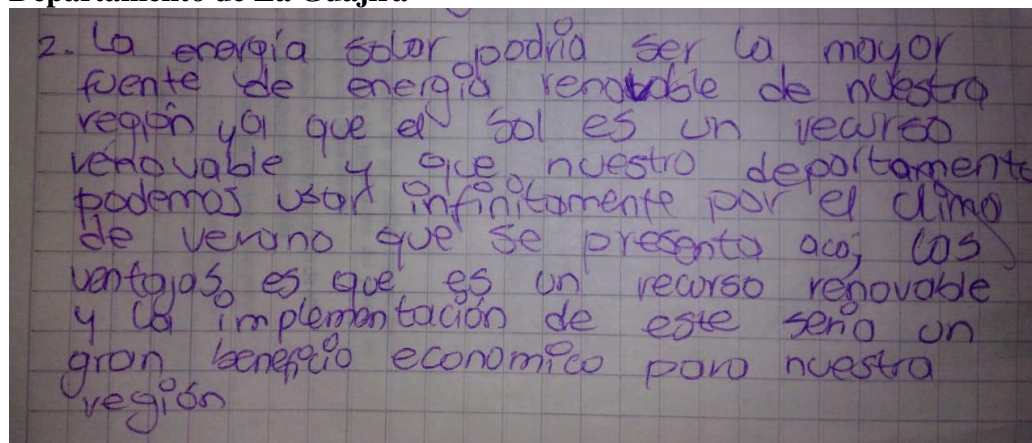 Departamento de La Guajira
2. La energía solar podría ser la mayor
fuente de energía renovable de nuestra
región ya que el sol es un recurso
renovable y que nuestro departamento
podemos usar infinitamente por el clima
de verano que se presenta acá, las
ventajas es que es un recurso renovable
y la implementación de este seria un
gran beneficio economico para nuestra
región